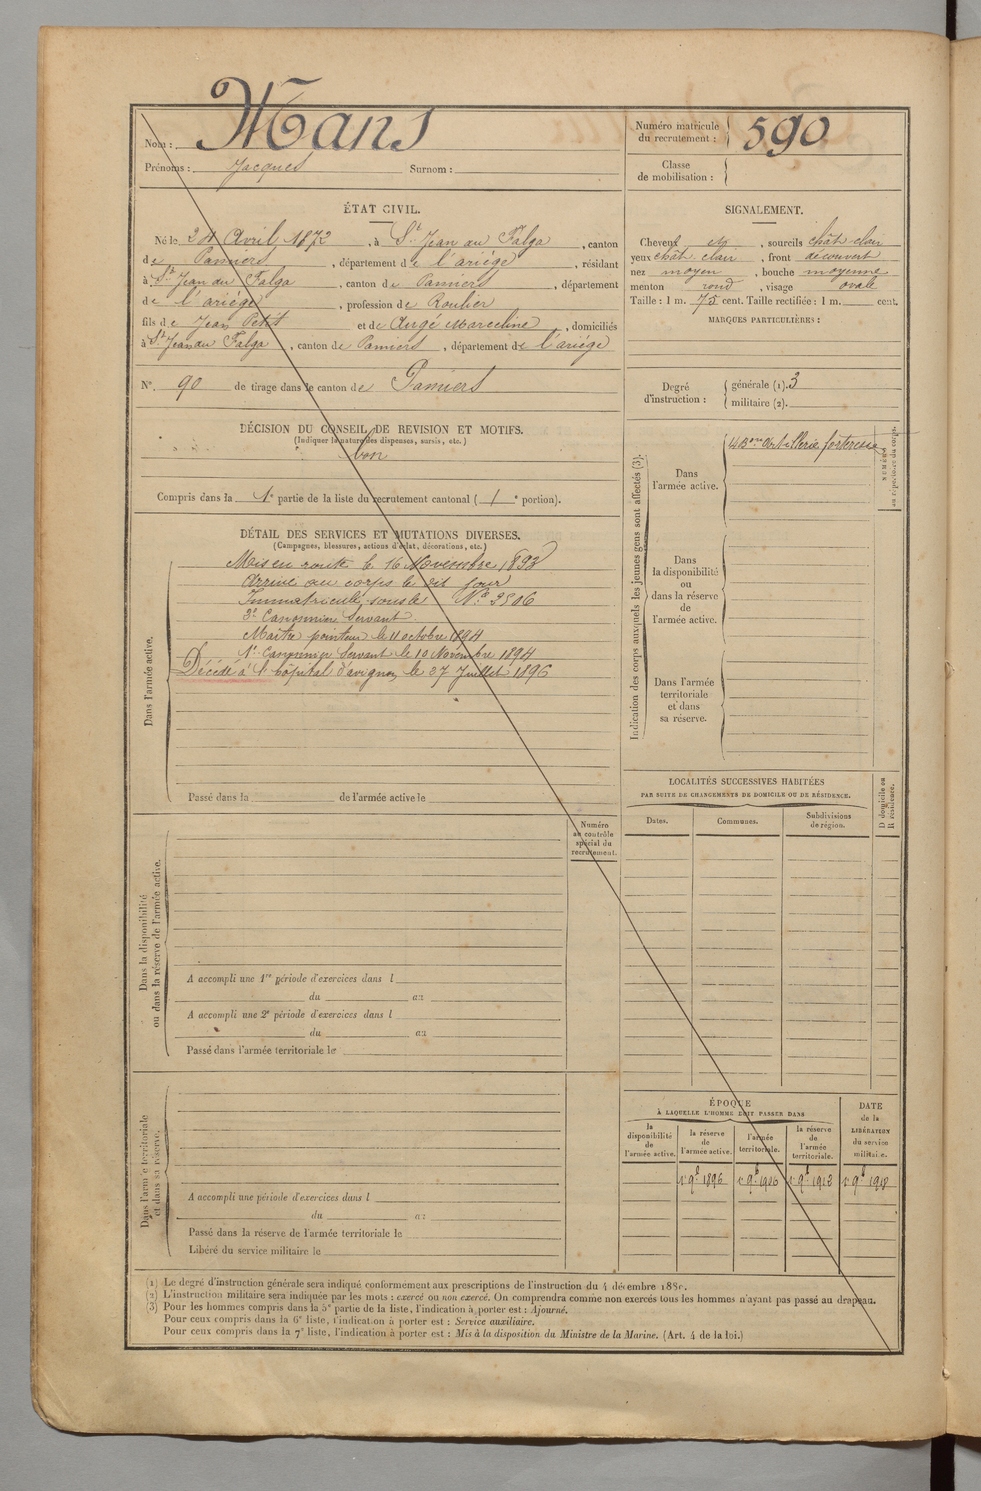 Nom : Mans
Prénoms : Jacques Surnom :
Numéro matricule du recrutement : 590
Classe de mobilisation :
ÉTAT CIVIL.
Né le 24 Avril 1872, à St Jean du Falga, canton
de Pamiers, département de l'ariège, résidant
à St Jean du Falga, canton de Pamiers, département
de l'ariège, profession de Roulier
fils de Jean Petit et de Augé Marceline, domiciliés
à St Jean du Falga, canton de Pamiers, département de l'ariège
N° 90 de tirage dans le canton de Pamiers
SIGNALEMENT.
Cheveux et, sourcils chât-clair
yeux chât. clair, front découvert
nez moyen, bouche moyenne
menton rond, visage ovale
Taille : 1 m. 75 cent. Taille rectifiée : 1 m. cent.
MARQUES PARTICULIÈRES :
Degré d'instruction :
générale (1). 3
militaire (2).
DÉCISION DU CONSEIL DE REVISION ET MOTIFS.
(Indiquer la nature des dispenses, sursis, etc.)
bon
Compris dans la 1e partie de la liste du recrutement cantonal ( 1 e portion).
DÉTAIL DES SERVICES ET MUTATIONS DIVERSES.
(Campagnes, blessures, actions d'éclat, décorations, etc.)
Dans l'armée active.
Mis en route le 16 Novembre 1893
Arrivé au corps le dit jour
Immatriculé sous le N° 3506
2e Canonnier Servant
Maître pointeur le 11 octobre 1894
1e Canonnier Servant le 10 Novembre 1894
Décédé à l'hôpital d'avignon le 27 Juillet 1896
Passé dans la de l'armée active le
Indication des corps auxquels les jeunes gens sont affectés (3).
NUMÉRO au répertoire du corps.
Dans l'armée active.
4 Bon Artillerie forteresse
Dans la disponibilité ou dans la réserve de l'armée active.
Dans l'armée territoriale et dans sa réserve.
LOCALITÉS SUCCESSIVES HABITÉES
PAR SUITE DE CHANGEMENTS DE DOMICILE OU DE RÉSIDENCE.
Dates. Communes. Subdivisions de région.
D domicile ou R résidence.
Numéro au contrôle spécial du recrutement.
Dans la disponibilité ou dans la réserve de l'armée active.
A accompli une 1re période d'exercices dans l
du au
A accompli une 2e période d'exercices dans l
du au
Passé dans l'armée territoriale le
Dans l'armée territoriale et dans sa réserve.
A accompli une période d'exercices dans l
du au
Passé dans la réserve de l'armée territoriale le
Libéré du service militaire le
ÉPOQUE
À LAQUELLE L'HOMME DOIT PASSER DANS
la disponibilité de l'armée active.
la réserve de l'armée active.
l'armée territoriale.
la réserve de l'armée territoriale.
DATE de la LIBÉRATION du service militaire.
1896 1906 1912 1918
(1) Le degré d'instruction générale sera indiqué conformement aux prescriptions de l'instruction du 4 décembre 1889.
(2) L'instruction militaire sera indiquée par les mots : exercé ou non exercé. On comprendra comme non exercés tous les hommes n'ayant pas passé au drapeau.
(3) Pour les hommes compris dans la 5e partie de la liste, l'indication à porter est : Ajourné.
Pour ceux compris dans la 6e liste, l'indication à porter est : Service auxiliaire.
Pour ceux compris dans la 7e liste, l'indication à porter est : Mis à la disposition du Ministre de la Marine. (Art. 4 de la loi.)